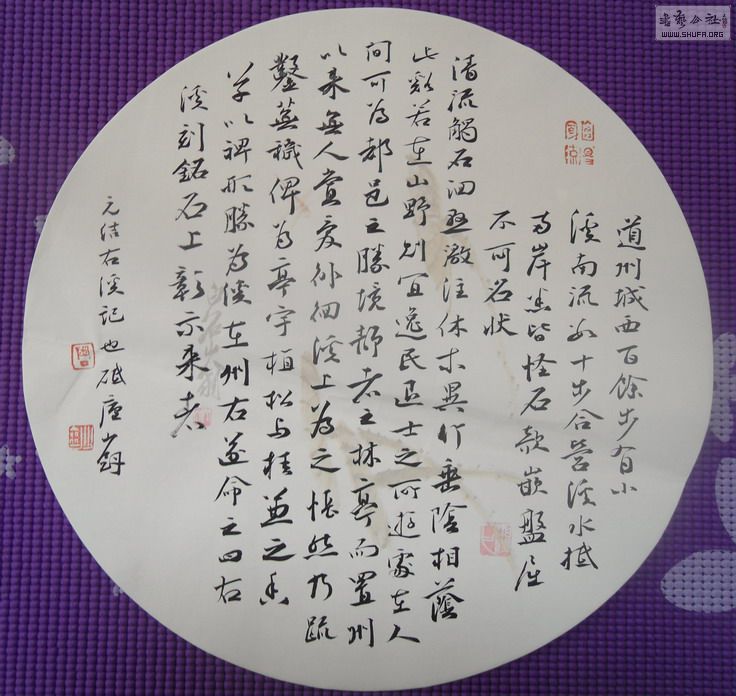 道州城西百餘步有小
溪南流數十步合營溪水抵
兩岸悉皆怪石欹嵌盤屈
不可名狀
清流觸石洄懸激注休木異竹垂陰相蔭
此谿若在山野則宜逸民退士之所遊處在人
間可為都邑之勝境靜者之林亭而置州
以來無人賞愛徘徊溪上為之悵然乃疏
鑿蕪穢俾為亭宇植松與桂兼之香
草以裨形勝為溪在州右遂命之曰右
溪刻銘石上彰示來者
元結右溪記也砥廬
書藝公社
WWW.SHUFA.ORG